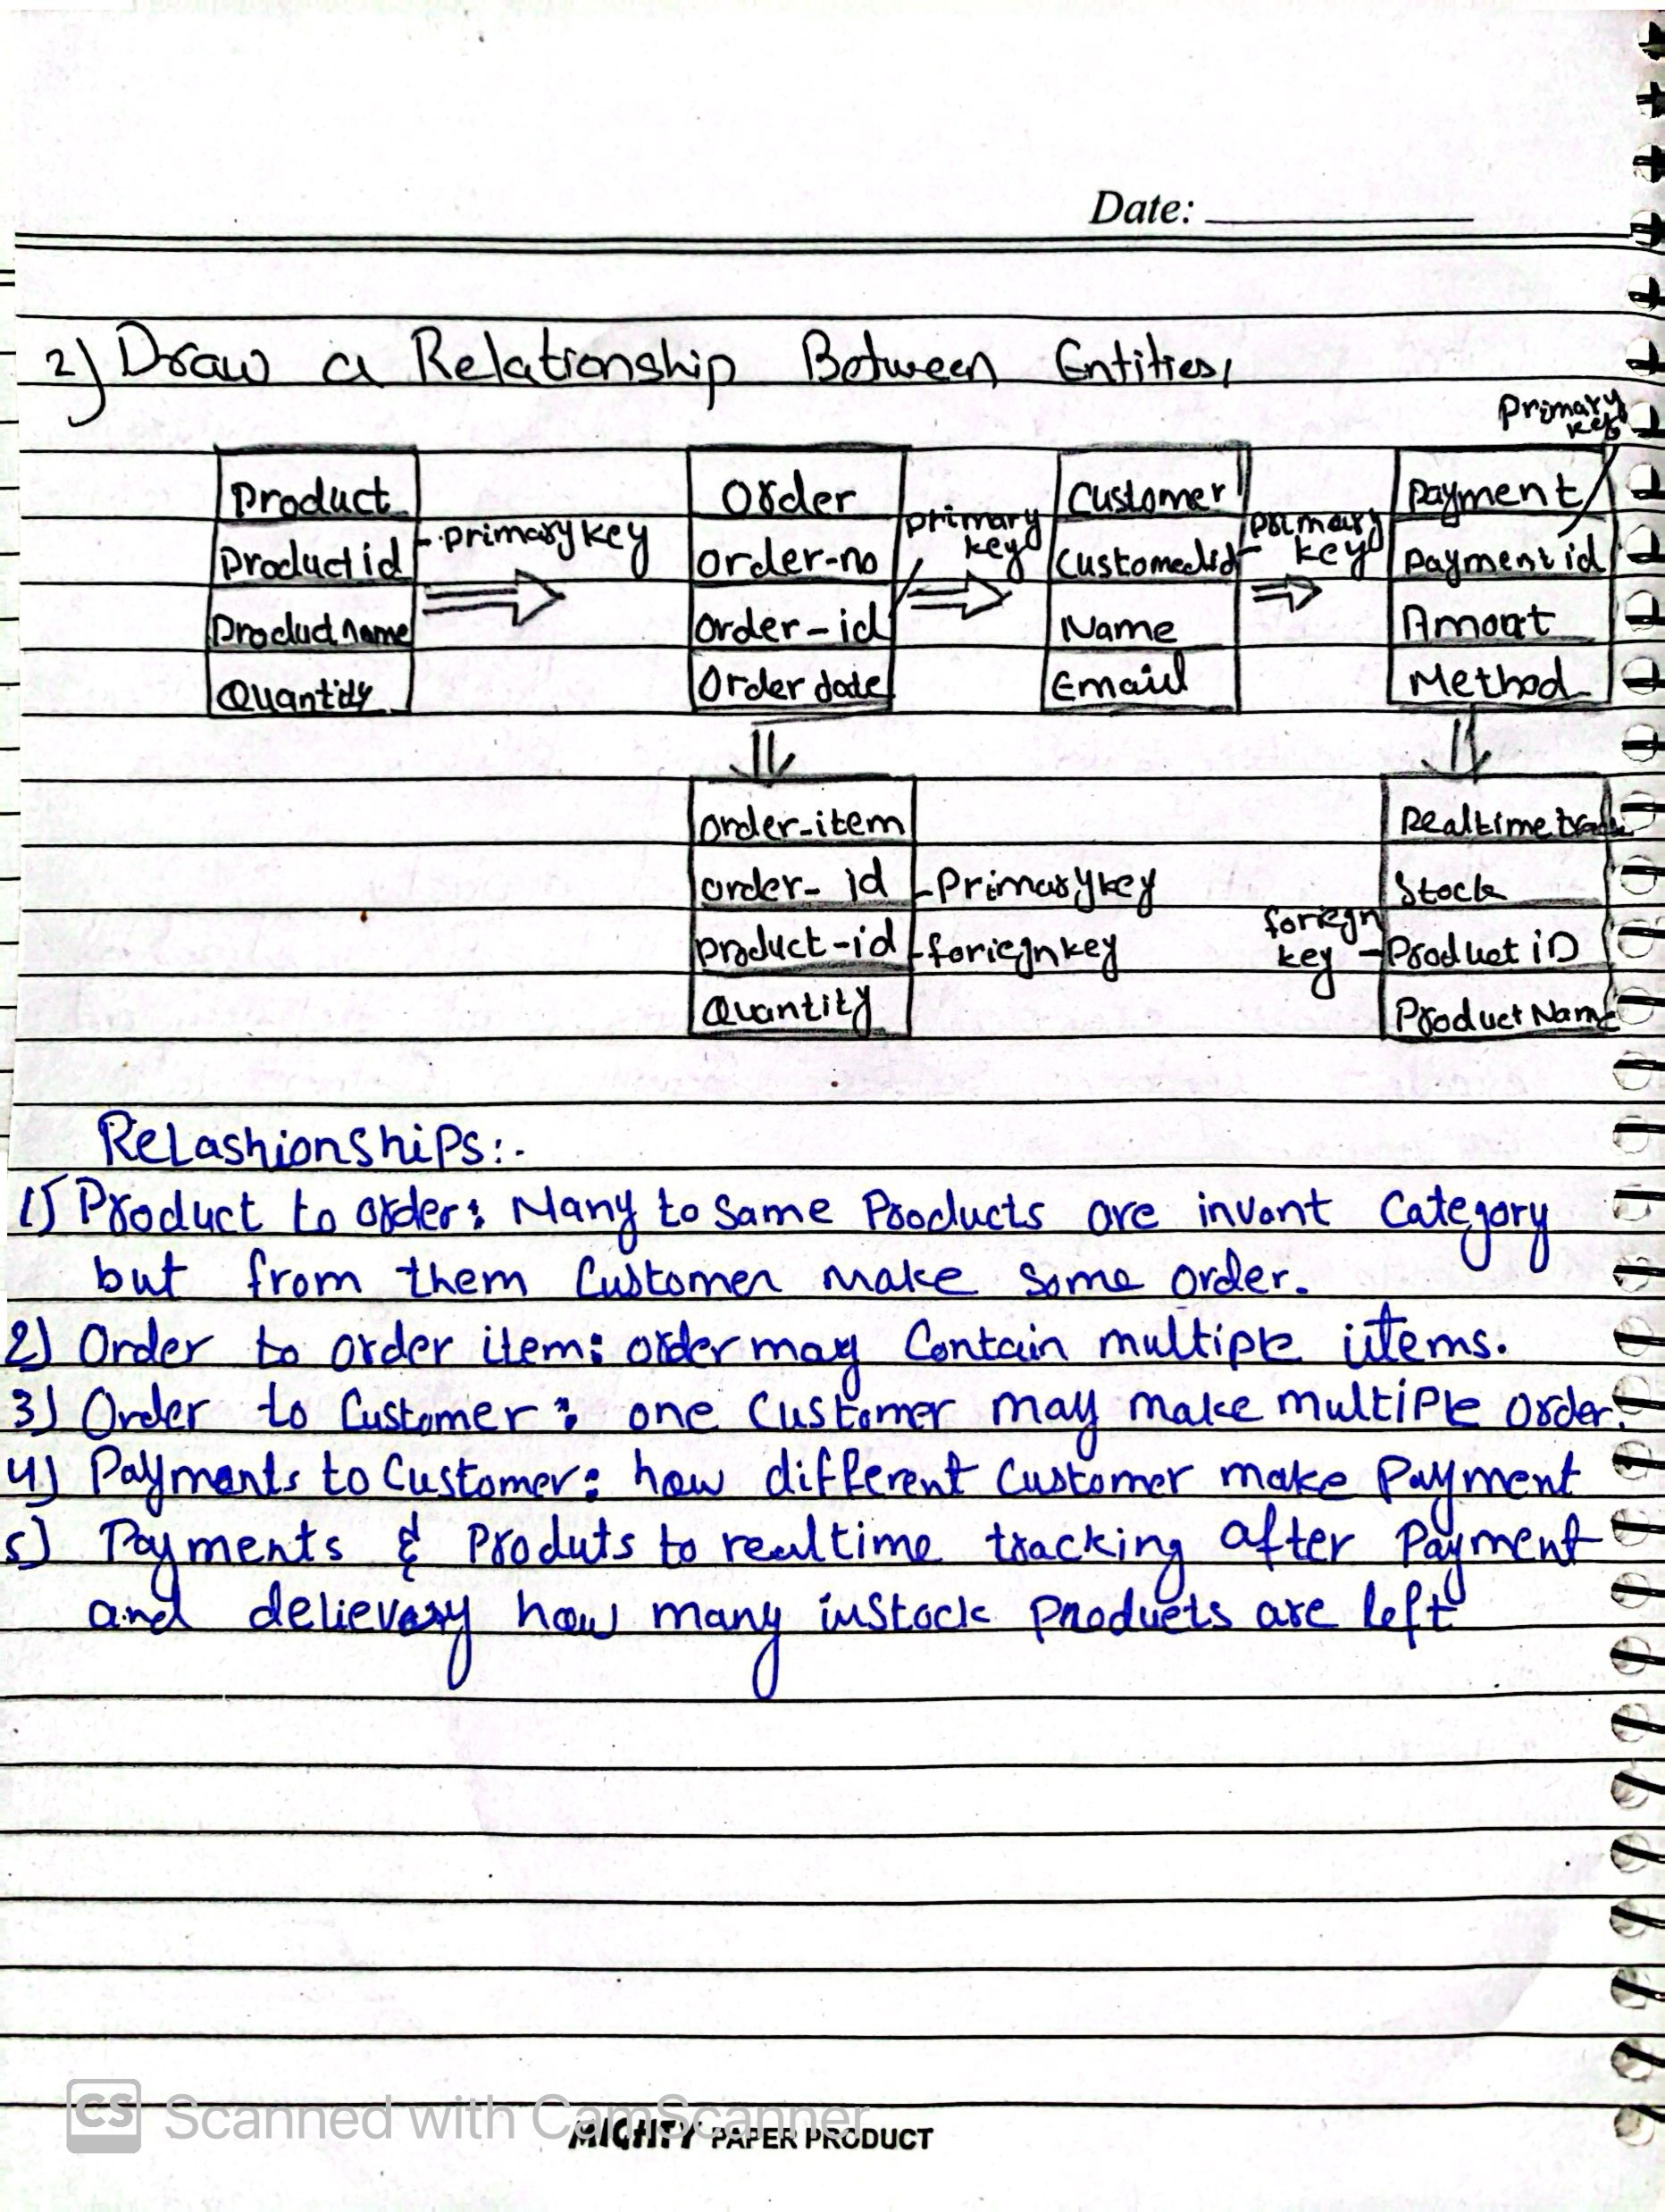 Date:
2) Draw a Relationship Between Entities,
Primary
key
Product
Product id
Product name
Quantity
- primary key
Order
order-no
order-id
Order date
primary
key
Customer
Customer id
Name
Email
primary
key
Payment
Payment id
Amoat
Method
order-item
order-id
product-id
Quantity
- Primary key
- foriegn key
Realtime
Stock
Product iD
Product Name
foriegn
key
Relashionships:-
1) Product to order: Many to Same Products are invant Category
but from them Customer make some order.
2) Order to order item: order may Contain multiple iitems.
3) Order to Customer: one Customer may make multiple order.
4) Payments to Customer: how different Customer make Payment
5) Payments & Produts to realtime tracking after Payment
and delievery how many instock products are left
CS Scanned with CamScanner
MIGHTY PAPER PRODUCT